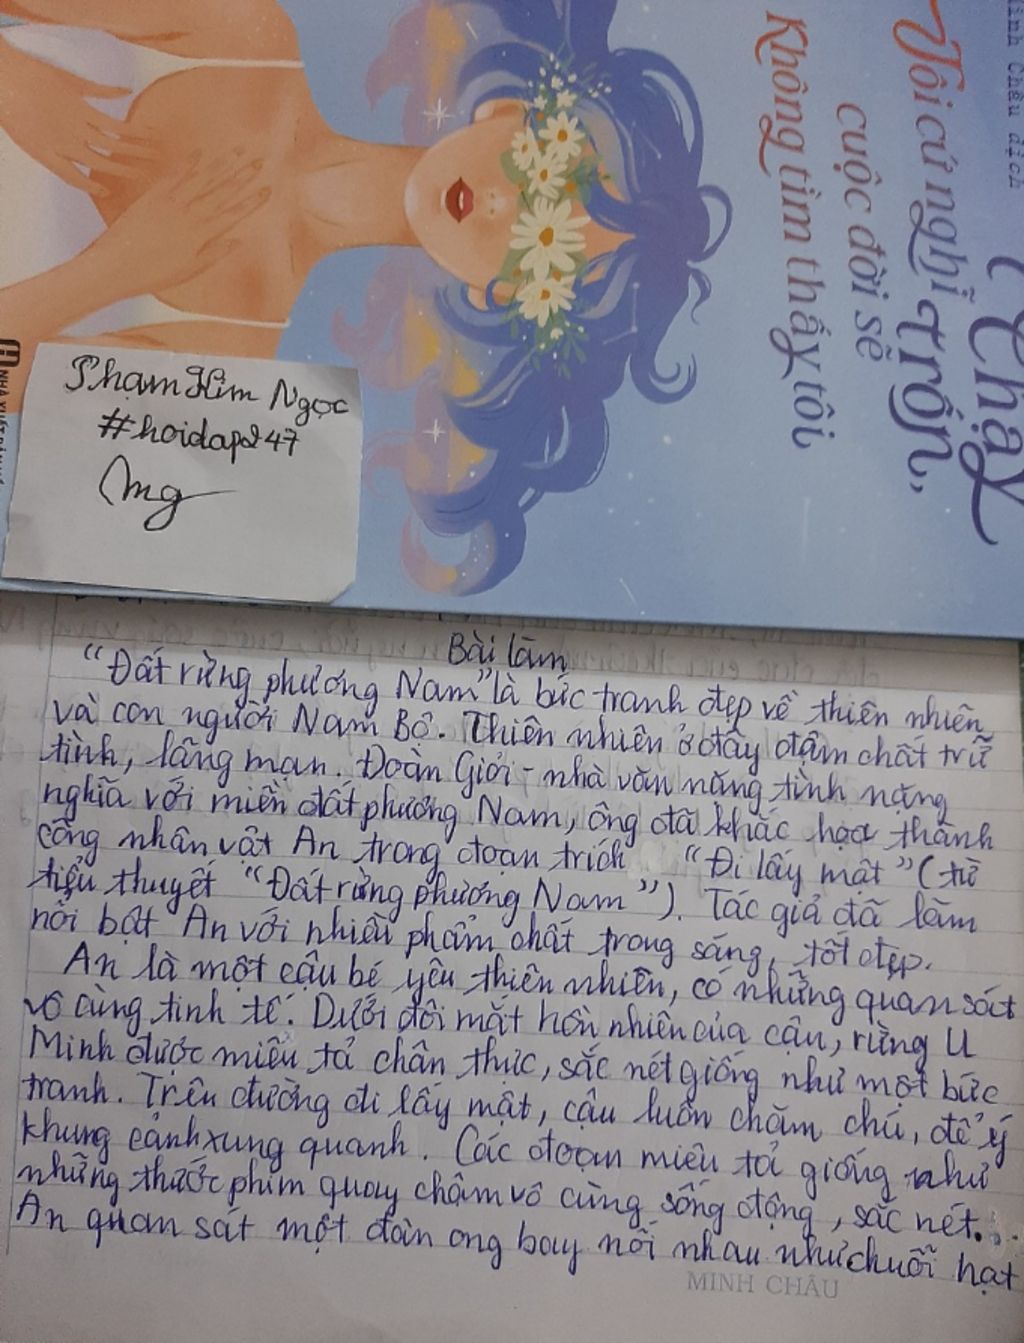 Minh Châu dịch
Chạy
Trốn,
Tôi cứ nghĩ
cuộc đời sẽ
Không tìm thấy tôi
Phạm Kim Ngọc
#hoidap247
Bài làm
"Đất rừng phương Nam" là bức tranh đẹp về thiên nhiên
và con người Nam Bộ. Thiên nhiên ở đây đậm chất trữ
tình, lãng mạn. Đoàn Giỏi - nhà văn nặng tình nặng
nghĩa với miền đất phương Nam, ông đã khắc họa thành
công nhân vật An trong đoạn trích "Đi lấy mật" (từ
tiểu thuyết "Đất rừng phương Nam"). Tác giả đã làm
nổi bật An với nhiều phẩm chất trong sáng, tốt đẹp.
An là một cậu bé yêu thiên nhiên, có những quan sát
vô cùng tinh tế. Dưới đôi mắt hồn nhiên của cậu, rừng U
Minh được miêu tả chân thực, sắc nét giống như một bức
tranh. Trên đường đi lấy mật, cậu luôn chăm chú, để ý
khung cảnh xung quanh. Các đoạn miêu tả giống như
những thước phim quay chậm vô cùng sống động, sắc nét.
An quan sát một đàn ong bay nối nhau như chuỗi hạt
MINH CHÂU